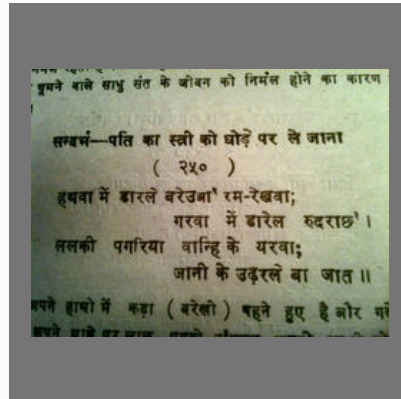 घूमने वाले साधु संत के जीवन को निर्मल होने का कारण
सन्दर्भ—पति का स्त्री को घोड़े पर ले जाना
( २५० )
हथवा में डारले बरेउआ' रम-रेखवा;
गरवा में डारेल रुदराछ' ।
ललकी पगरिया वान्हि के यरवा;
जानी के उढ़रले बा जात ॥
अपने हाथों में कड़ा ( बरेखी ) पहने हुए है और गले
अपने माथे पर लाल